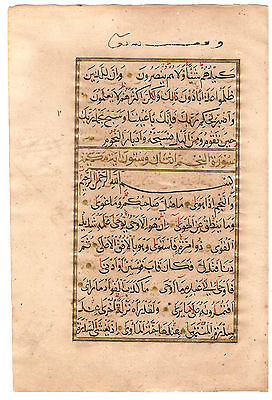 كَيْدُهُمْ شَيْئًا وَلَا هُمْ يُنْصَرُونَ وَإِنَّ لِلَّذِينَ
ظَلَمُوا عَذَابًا دُونَ ذَلِكَ وَلَكِنَّ أَكْثَرَهُمْ لَا يَعْلَمُونَ
وَاصْبِرْ لِحُكْمِ رَبِّكَ فَإِنَّكَ بِأَعْيُنِنَا وَسَبِّحْ بِحَمْدِ رَبِّكَ
حِينَ تَقُومُ وَمِنَ اللَّيْلِ فَسَبِّحْهُ وَإِدْبَارَ النُّجُومِ
سورة النجم وستون آية مكية
بِسْمِ اللَّهِ الرَّحْمَنِ الرَّحِيمِ
وَالنَّجْمِ إِذَا هَوَى مَا ضَلَّ صَاحِبُكُمْ وَمَا غَوَى وَ
مَا يَنْطِقُ عَنِ الْهَوَى إِنْ هُوَ إِلَّا وَحْيٌ يُوحَى عَلَّمَهُ شَدِيدُ
الْقُوَى ذُو مِرَّةٍ فَاسْتَوَى وَهُوَ بِالْأُفُقِ الْأَعْلَى ثُمَّ
دَنَا فَتَدَلَّى فَكَانَ قَابَ قَوْسَيْنِ أَوْ أَدْنَى
فَأَوْحَى إِلَى عَبْدِهِ مَا أَوْحَى مَا كَذَبَ الْفُؤَادُ مَا رَأَى
أَفَتُمَارُونَهُ عَلَى مَا يَرَى وَلَقَدْ رَآهُ نَزْلَةً أُخْرَى عِنْدَ
سِدْرَةِ الْمُنْتَهَى عِنْدَهَا جَنَّةُ الْمَأْوَى إِذْ يَغْشَى السِّدْرَةَ